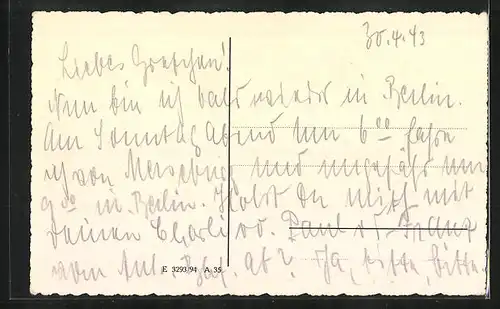 30.4.43
Liebes Gretchen!
Nun bin ich bald wieder in Berlin.
Am Sonntag Abend um 6 00 fahre
ich von Merseburg und ungefähr um
9 00 in Berlin. Holst Du mich mit
Deinen Charli od. Paul od. Franz
vom Anh. Bhf. ab? Ja, bitte, bitte.
E 3293/94 A 35